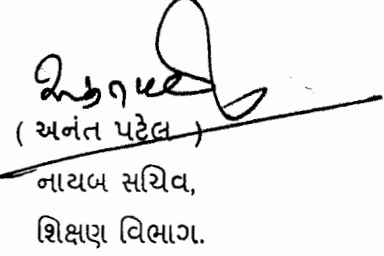 ( અનંત પટેલ )
નાયબ સચિવ,
શિક્ષણ વિભાગ.